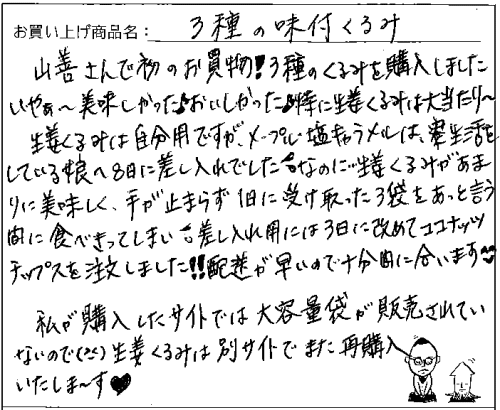 お買い上げ商品名: 3種の味付くるみ
山善さんで初のお買物!3種のくるみを購入しました
いやぁ〜美味しかった♪おいしかった♪特に生姜くるみは大当たり〜
生姜くるみは自分用ですが、メープル・塩キャラメルは、寮生活を
している娘へ8日に差し入れでした なのに生姜くるみがあま
りに美味しく、手が止まらず1日に受け取った3袋をあっと言う
間に食べきってしまい 差し入れ用には3日に改めてココナッツ
チップスを注文しました!!配送が早いので十分間に合います♥
私が購入したサイトでは大容量袋が販売されてい
ないので 生姜くるみは別サイトでまた再購入
いたしま〜す♥